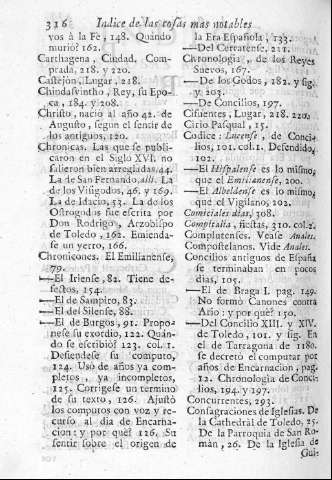 316 Indice de las cosas mas notables
vos à la Fe, 148. Quando
murio? 162.
Carthagena, Ciudad. Com-
prada, 218. y 220.
Castejon, Lugar, 218.
Chindasvintho, Rey, su Epo-
ca, 184. y 208.
Christo, nacio al año 42. de
Augusto, segun el sentir de
los antiguos, 120.
Chronicas. Las que se publi-
caron en el Siglo XVI. no
salieron bien arregladas, 44.
La de San Fernando, alli. La
de los Visigodos, 46. y 169.
La de Idacio, 53. La de los
Ostrogodos fue escrita por
Don Rodrigo, Arzobispo
de Toledo, 162. Emienda-
se un yerro, 166.
Chronicones. El Emilianense,
79.
—El Iriense, 82. Tiene de-
fectos, 154.
—El de Sampiro, 83.
—El del Silense, 88.
—El de Burgos, 91. Propo-
nese su exordio, 122. Quan-
do se escribio? 123. col. 1.
Defiendese su computo,
124. Uso de años ya com-
pletos, ya incompletos,
125. Corrigese un termino
de su texto, 126. Ajustò
los computos con voz y re-
curso al dia de Encarna-
cion: y por què? 126. Su
sentir sobre el origen de
la Era Española, 133.
—Del Cerratense, 211.
Chronologia, de los Reyes
Suevos, 167.
—De los Godos, 182. y sig.
y 203.
—De Concilios, 197.
Cifuentes, Lugar, 218. 220.
Cirio Pasqual, 15.
Codice: Lucense, de Conci-
lios, 101. col. 1. Defendido,
102.
—El Hispalense es lo mismo,
que el Emilianense, 200.
—El Albeldense es lo mismo,
que el Vigilano, 102.
Comiciales dias, 308.
Compitalia, fiestas, 310. col. 2.
Complutenses. Vease Anales.
Compostelanos. Vide Anales.
Concilios antiguos de España
se terminaban en pocos
dias, 105.
—El de Braga I. pag. 149.
No formò Canones contra
Ario: y por què? 150.
—Del Concilio XIII. y XIV.
de Toledo, 101. y sig. En
el de Tarragona de 1180.
se decretò el computar por
años de Encarnacion, pag.
12. Chronologia de Conci-
lios, 194. y 197.
Concurrentes, 293.
Consagraciones de Iglesias. De
la Cathedral de Toledo, 25.
De la Parroquia de San Ro-
mán, 26. De la Iglesia de
Gui-